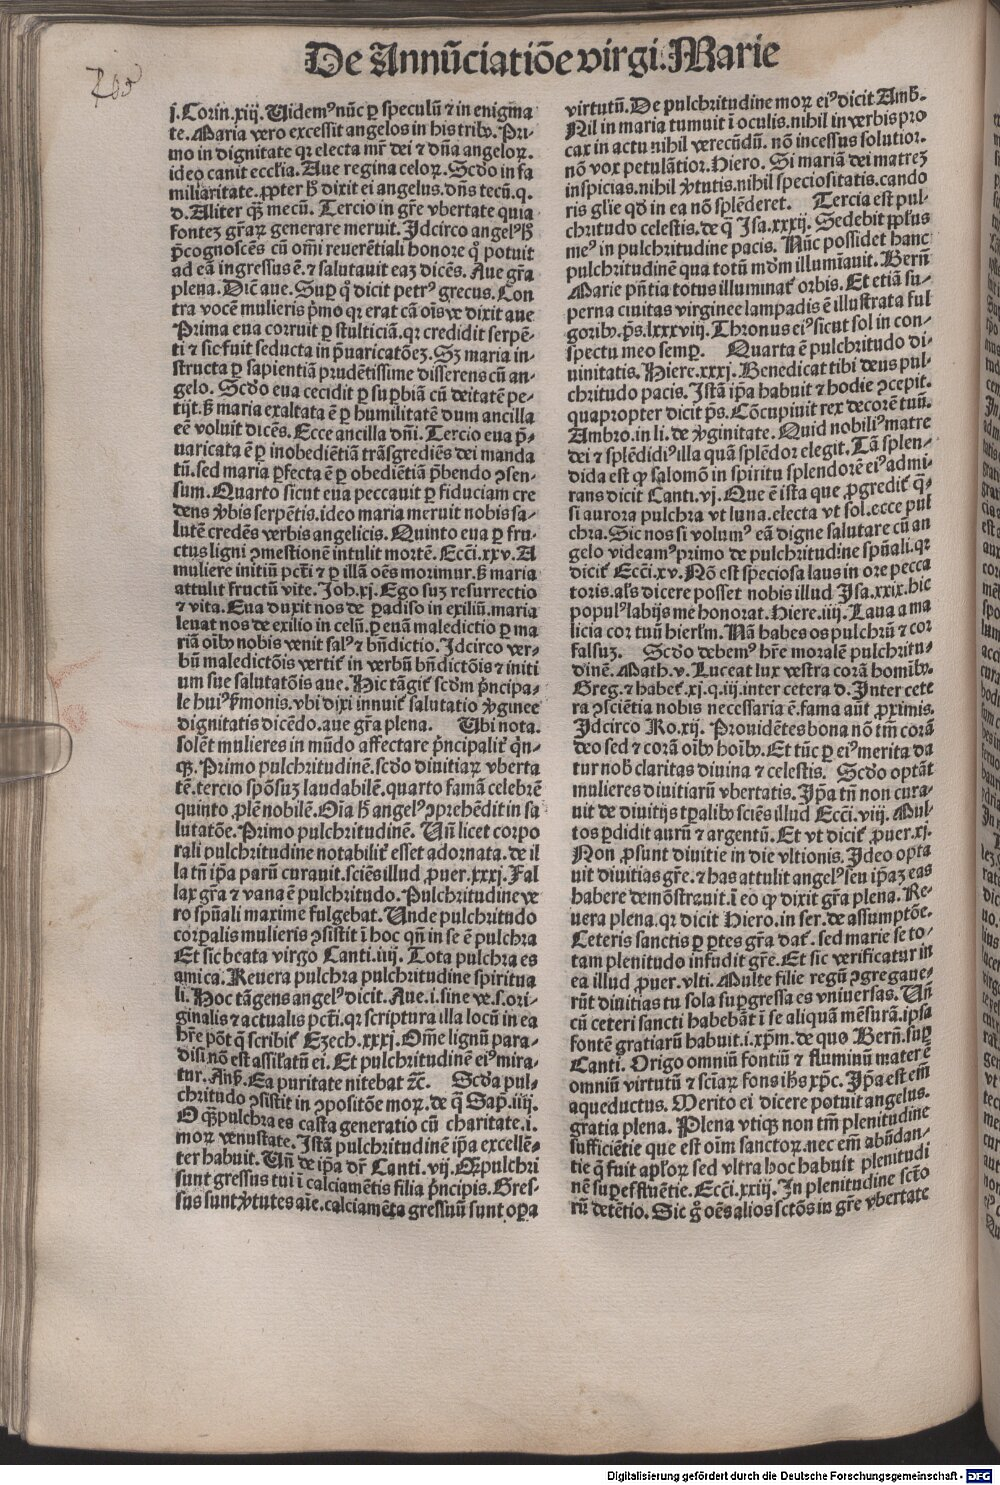 De Annūciatiōe virgi. Marie
205
j. Corin. xiij. Uidemꝰ nūc ꝑ speculū ⁊ in enigma
te. Maria vero excessit angelos in his tribꝰ. Pri⸗
mo in dignitate qꝛ electa mr̄ dei ⁊ dn̄a angeloꝝ.
ideo canit eccl̓ia. Aue regina celoꝝ. Scdo in fa
miliaritate. ꝓpter hͦ dixit ei angelus. dn̄s tecū. q.
d. Aliter qꝫ̄ mecū. Tercio in gr̄e vbertate quia
fontez gr̄aꝝ generare meruit. Idcirco angelꝰ hͦ
p̄cognoscēs cū om̄i reuerētiali honore qͦ potuit
ad eā ingressus ē. ⁊ salutauit eaz dicēs. Aue gr̄a
plena. Dic̄ aue. Suꝑ qͦ dicit petrꝰ grecus. Con
tra vocē mulieris pͥmo qꝛ erat cā oīs ve dixit aue
Prima eua corruit ꝑ stulticiā. qꝛ credidit serpē⸗
ti ⁊ sic fuit seducta in p̄uaricatōez. Sꝫ maria in⸗
structa ꝑ sapientiā prudētissime disserens cū an⸗
gelo. Scdo eua cecidit ꝑ suꝑbiā cū deitatē pe⸗
tijt. sꝫ maria exaltata ē ꝑ humilitatē dum ancilla
eē voluit dicēs. Ecce ancilla dn̄i. Tercio eua p̄⸗
uaricata ē ꝑ inobediētiā trāsgrediēs dei manda
tū. sed maria ꝑfecta ē ꝑ obediētiā p̄bendo ꝯsen⸗
sum. Quarto sicut eua peccauit ꝑ fiduciam cre
dens v̓bis serpētis. ideo maria meruit nobis sa⸗
lutē credēs verbis angelicis. Quinto eua ꝑ fru⸗
ctus ligni ꝯmestionē intulit mortē. Ecci̓. xxv. A
muliere initiū pcti̓ ⁊ ꝑ illā oēs morimur. sꝫ maria
attulit fructū vite. Joh. xj. Ego suꝫ resurrectio
⁊ vita. Eua duxit nos de ꝑadiso in exiliū. maria
leuat nos de exilio in celū. ꝑ euā maledictio ꝑ ma
riā oībꝰ nobis venit salꝰ ⁊ bn̄dictio. Idcirco ver⸗
bū maledictōis vertit̓ in verbū bn̄dictōis ⁊ initi
um sue salutatōis aue. Hic tāgit̓ scdm pͥncipa⸗
le huiꝰ ẜmonis. vbi dixi innuit̓ salutatio v̓ginee
dignitatis dicēdo. aue gr̄a plena. Ubi nota.
solēt mulieres in mūdo affectare pͥncipalit̓ qͥn⸗
qꝫ. Primo pulchritudinē. scdo diuitiaꝝ vberta
tē. tercio spōsuꝫ laudabilē. quarto famā celebrē
quinto ꝓlē nobilē. Oīa hͦ angelꝰ ꝯprehēdit in sa
lutatōe. Primo pulchritudinē. Un̄ licet corpo
rali pulchritudine notabilit̓ esset adornata. de il
la tn̄ ip̄a parū curauit. sciēs illud ꝓuer. xxxj. Fal
lax gr̄a ⁊ vana ē pulchritudo. Pulchritudine ve
ro spūali maxime fulgebat. Unde pulchritudo
corꝑalis mulieris ꝯsistit ī hoc qn̄ in se ē pulchra
Et sic beata virgo Canti. iiij. Tota pulchra es
amica. Reuera pulchra pulchritudine spiritua
li. Hoc tāgens angelꝰ dicit. Aue. i. sine ve. s. ori⸗
ginalis ⁊ actualis pcti̓. qꝛ scriptura illa locū in ea
hr̄e pōt q̄ scribit̓ Ezech. xxxj. Om̄e lignū para⸗
disi nō est assil̓atū ei. Et pulchritudinē eiꝰ mira⸗
tur. Anꝭ. Ea puritate nitebat ⁊c̄. Scda pul⸗
chritudo ꝯsistit in ꝯpositōe moꝝ. de q̄ Sap̄. iiij.
O qꝫ̄ pulchra es casta generatio cū charitate. i.
moꝝ venustate. Istā pulchritudinē ip̄a excellē⸗
ter habuit. Un̄ de ip̄a dr̄ Canti. vij. Qꝫ̄ pulchri
sunt gressus tui ī calciamētis filia pͥncipis. Gres⸗
sus sunt v̓tutes aīe. calciamēta gressuū sunt oꝑa
virtutū. De pulchritudine moꝝ eiꝰ dicit Amb̄.
Nil in maria tumuit ī oculis. nihil in verbis pro
cax in actu nihil verecūdū. nō incessus solutior.
nō vox petulātior. Hiero. Si mariā dei matreꝫ
inspicias. nihil v̓tutis. nihil speciositatis. cando
ris gl̓ie qd̓ in ea nō splēderet. Tercia est pul⸗
chritudo celestis. de q̄ Isa. xxxij. Sedebit pp̄lus
meꝰ in pulchritudine pacis. Nūc possidet hanc
pulchritudinē qua totū mdm̄ illumīauit. Bern̄
Marie pn̄tia totus illuminat̓ orbis. Et etiā su⸗
perna ciuitas virginee lampadis ē illustrata ful
goribꝰ. ps̄. lxxxviij. Thronus eiꝰ sicut sol in con⸗
spectu meo semꝑ. Quarta ē pulchritudo di⸗
uinitatis. Hiere. xxxj. Benedicat tibi deus pul⸗
chritudo pacis. Istā ip̄a habuit ⁊ hodie ꝯcepit.
quapropter dicit ps̄. Cōcupiuit rex decorē tuū.
Ambro. in li. de v̓ginitate. Quid nobiliꝰ matre
dei ⁊ splēdidiꝰ illa quā splēdor elegit. Tā splen⸗
dida est qͥ salomō in spiritu splendorē eiꝰ admi⸗
rans dicit Canti. vj. Que ē ista que ꝓgredit̓ qͣ⸗
si aurora pulchra vt luna. electa vt sol. ecce pul
chra. Sic nos si volumꝰ eā digne salutare cū an
gelo videamꝰ primo de pulchritudine spūali. qꝛ
dicit̓ Ecci̓. xv. Nō est speciosa laus in ore pecca
toris. al̓s dicere posset nobis illud Isa. xxix. hic
populꝰ labijs me honorat. Hiere. iiij. Laua a ma
licia cor tuū hierl̓m. Nā habes os pulchrū ⁊ cor
falsuꝫ. Scdo debemꝰ hr̄e moralē pulchritu⸗
dinē. Math. v. Luceat lux vestra corā homībꝰ.
Greg. ⁊ habet̓. xj. q. iij. inter cetera d. Inter cete
ra ꝯsciētia nobis necessaria ē. fama aūt ꝓximis.
Idcirco Ro. xij. Prouidētes bona nō tm̄ corā
deo sed ⁊ corā oībꝰ hoībꝰ. Et tūc ꝑ eiꝰ merita da
tur nob̓ claritas diuina ⁊ celestis. Scdo optāt
mulieres diuitiarū vbertatis. Ip̄a tn̄ non cura⸗
uit de diuitijs tꝑalibꝰ sciēs illud Ecci̓. viij. Mul⸗
tos ꝑdidit aurū ⁊ argentū. Et vt dicit̓ ꝓuer. xj.
Non ꝓsunt diuitie in die vltionis. Ideo opta
uit diuitias gr̄e. ⁊ has attulit angelꝰ seu ip̄aꝫ eas
habere demōstrauit. ī eo qͥ dixit gr̄a plena. Re⸗
uera plena. qꝛ dicit Hiero. in ser. de assumptōe.
Ceteris sanctis ꝑ ꝑtes gr̄a dat̓. sed marie se to⸗
tam plenitudo infudit gr̄e. Et sic verificatur in
ea illud ꝓuer. vlti. Multe filie regū ꝯgregaue⸗
rūt diuitias tu sola suꝑgressa es vniuersas. Un̄
cū ceteri sancti habebāt ī se aliquā mēsurā. ipsa
fontē gratiarū habuit. i. xp̄m. de quo Bern̄. suꝑ
Canti. Origo omniū fontiū ⁊ fluminū mater ē
omniū virtutū ⁊ sciaꝝ fons ih̄s xp̄c. Ip̄a est em̄
aqueductus. Merito ei dicere potuit angelus.
gratia plena. Plena vtiqꝫ non tm̄ plenitudine
sufficiētie que est oīm sanctoꝝ. nec em̄ abūdan⸗
tie q̄ fuit apl̓oꝝ sed vltra hoc habuit plenitudi
nē suꝑeffluētie. Ecci̓. xxiij. In plenitudine sctō
rū detētio. Sic gͦ oēs alios sctōs in gr̄e vbertate
Digitalisierung gefördert durch die Deutsche Forschungsgemeinschaft - DFG